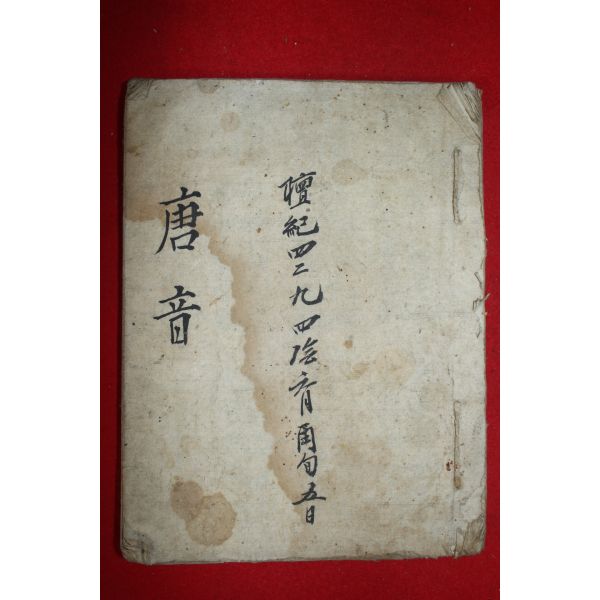 檀紀四二九四陰六月旬五日
唐音